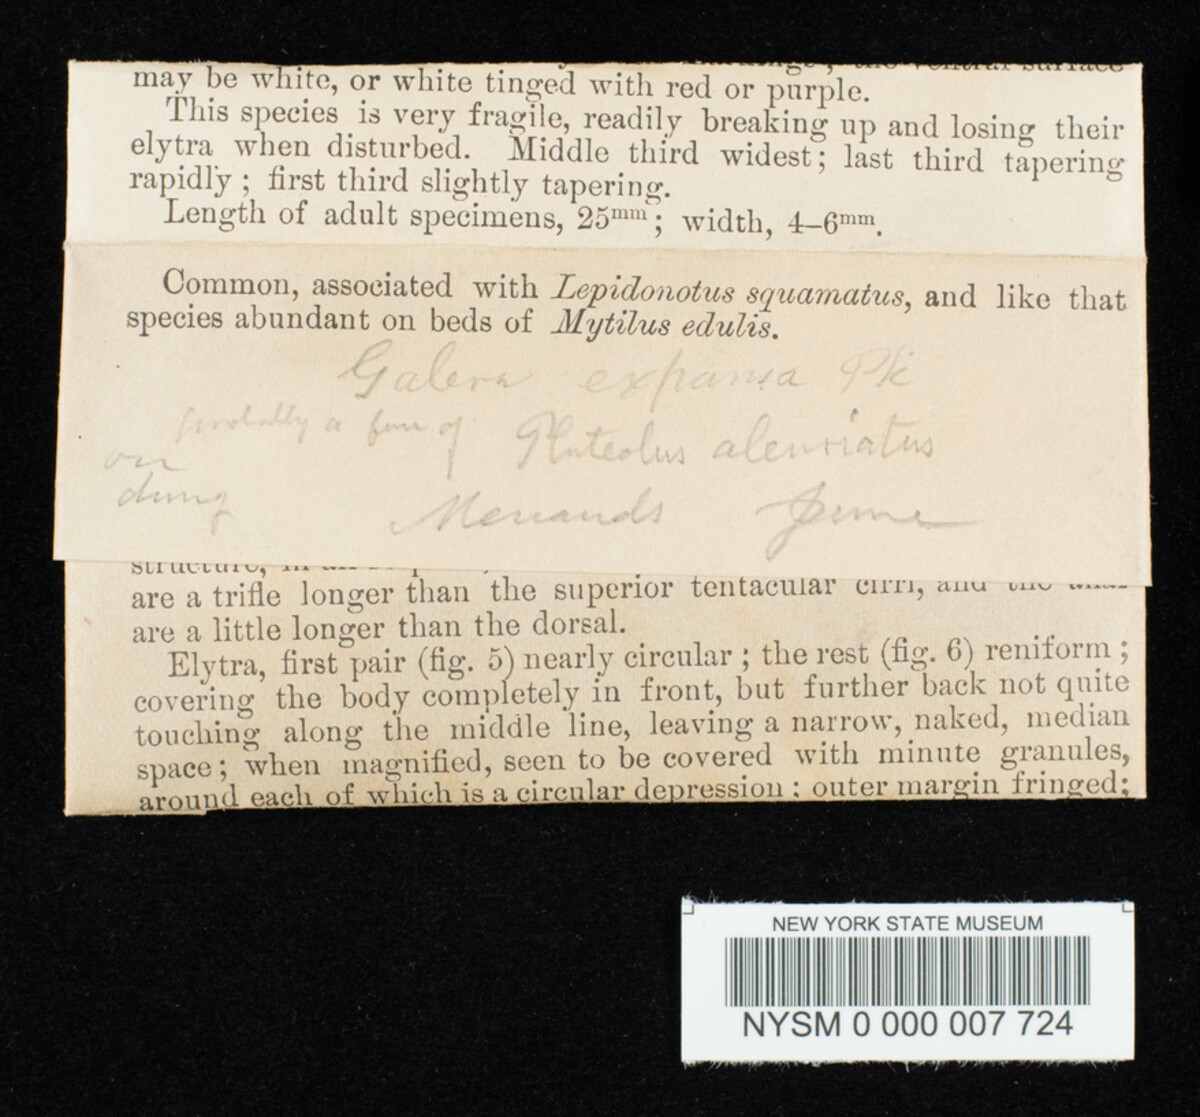 may be white, or white tinged with red or purple.
This species is very fragile, readily breaking up and losing their
elytra when disturbed. Middle third widest; last third tapering
rapidly; first third slightly tapering.
Length of adult specimens, 25mm; width, 4–6mm.
Common, associated with Lepidonotus squamatus, and like that
species abundant on beds of Mytilus edulis.
Galera expansa Pk
probably a form of Pluteolus aleuriatus
on
dung
Menands June
structure,
are a trifle longer than the superior tentacular cirri, and the anal
are a little longer than the dorsal.
Elytra, first pair (fig. 5) nearly circular; the rest (fig. 6) reniform;
covering the body completely in front, but further back not quite
touching along the middle line, leaving a narrow, naked, median
space; when magnified, seen to be covered with minute granules,
around each of which is a circular depression; outer margin fringed;
NEW YORK STATE MUSEUM
NYSM 0 000 007 724